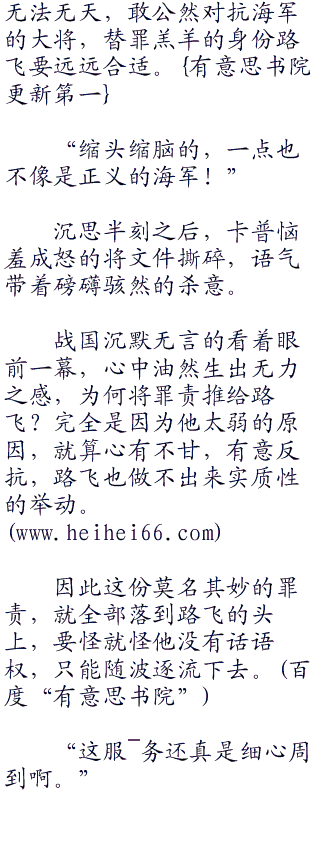 无法无天，敢公然对抗海军
的大将，替罪羔羊的身份路
飞要远远合适。{有意思书院
更新第一}
“缩头缩脑的，一点也
不像是正义的海军！”
沉思半刻之后，卡普恼
羞成怒的将文件撕碎，语气
带着磅礴骇然的杀意。
战国沉默无言的看着眼
前一幕，心中油然生出无力
之感，为何将罪责推给路
飞？完全是因为他太弱的原
因，就算心有不甘，有意反
抗，路飞也做不出来实质性
的举动。
(www.heihei66.com)
因此这份莫名其妙的罪
责，就全部落到路飞的头
上，要怪就怪他没有话语
权，只能随波逐流下去。(百
度“有意思书院”)
“这服¯务还真是细心周
到啊。”